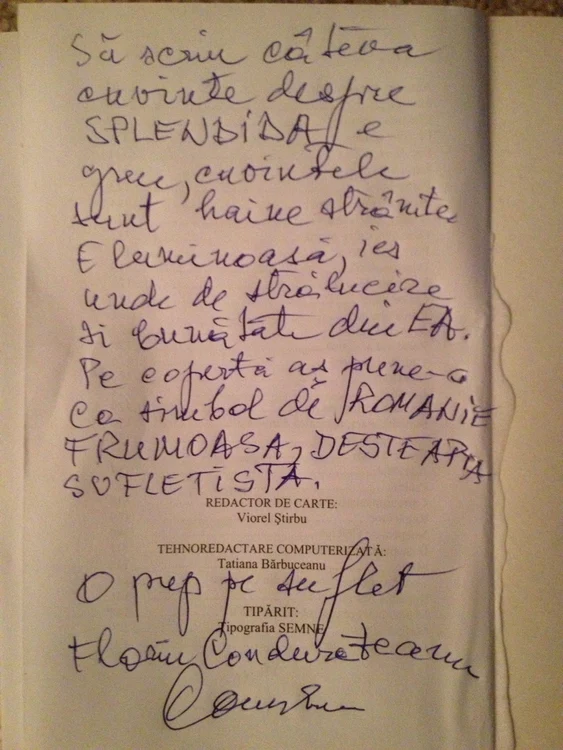 Să scriu câteva
cuvinte despre
SPLENDIDA, e
greu, cuvintele
sunt haine strâmte.
E luminoasă, ies
unde de strălucire
și bunătate din EA.
Pe copertă aș pune-o
Ca simbol de ROMANIE
FRUMOASA, DESTEAPTA
SUFLETISTA.
REDACTOR DE CARTE:
Viorel Știrbu
TEHNOREDACTARE COMPUTERIZATĂ:
Tatiana Bărbuceanu
O pup pe suflet
TIPĂRIT:
Tipografia SEMNE
Florin Condurățeanu